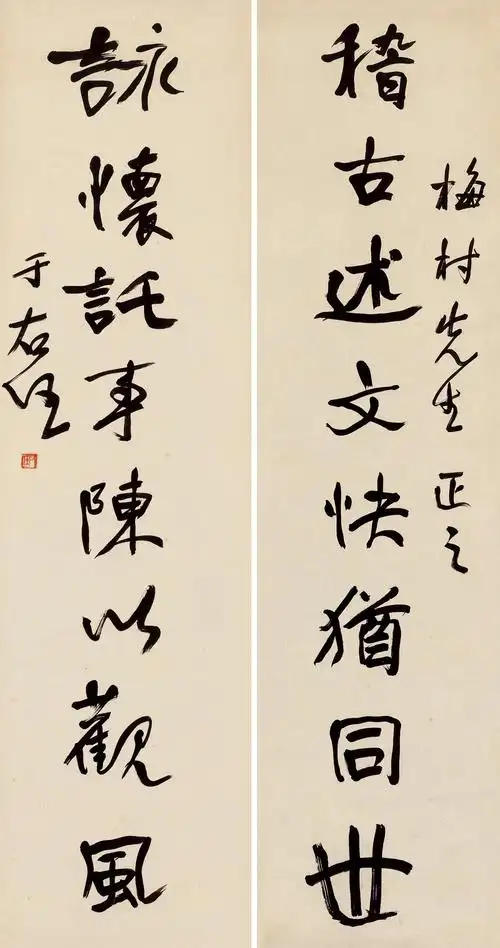 梅村先生正之
稽古述文快猶同世
詠懷託事陳以觀風
于右任